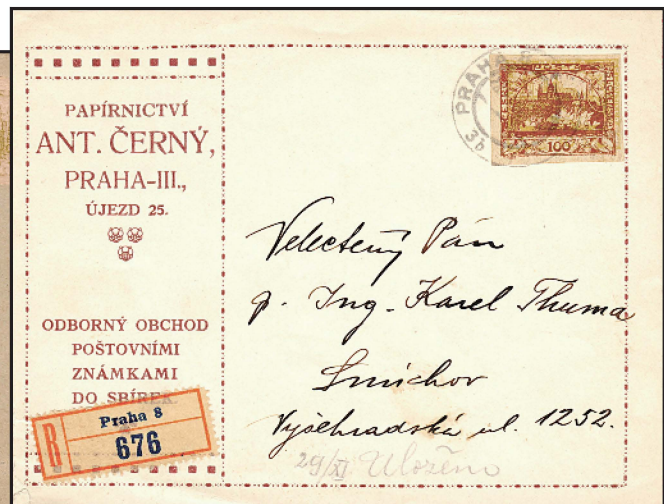 PAPÍRNICTVÍ
ANT. ČERNÝ,
PRAHA-III.,
ÚJEZD 25.
ODBORNÝ OBCHOD
POŠTOVNÍMI
ZNÁMKAMI
DO SBÍREK
R
Praha 8
676
PRAHA
3b
100
Velectený Pán
p. Ing. Karel Thuma
Smíchov
Vyšehradská ul. 1252.
29/XI Uloženo